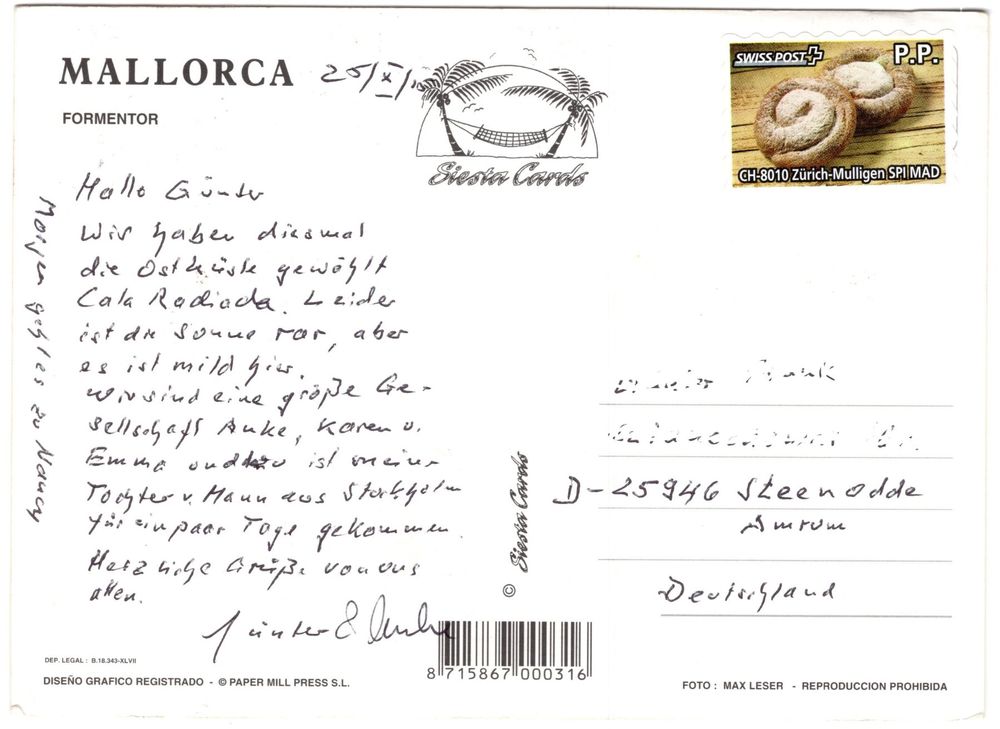 MALLORCA
25/X/
FORMENTOR
Siesta Cards
SWISS POST
P.P.
CH-8010 Zürich-Mulligen SPI MAD
Hallo Günter
Wir haben diesmal
die Ostküste gewählt
Cala Radiada. Leider
ist die Sonne rar, aber
es ist mild hier.
Wir sind eine große Ge-
sellschaft Anke, Karen u.
Emma und ist meine
Tochter u. Mann aus Stockholm
für ein paar Tage gekommen.
Herzliche Grüße von uns
allen.
Günter & Anke
Morgen geht es zu Nancy
Frank
D-25946 Steenodde
Amrum
Deutschland
© Siesta Cards
8 715867 000316
DEP. LEGAL : B.18.343-XLVII
DISEÑO GRAFICO REGISTRADO - © PAPER MILL PRESS S.L.
FOTO : MAX LESER - REPRODUCCION PROHIBIDA